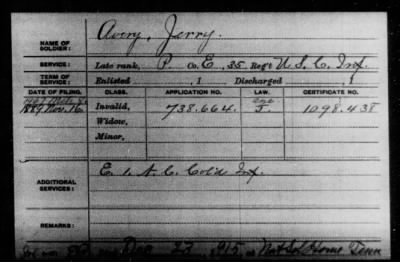 NAME OF SOLDIER: Avery, Jerry.
SERVICE: Late rank, P Co. E, 35 Reg't U. S. C. Inf.
TERM OF SERVICE: Enlisted , 1 Discharged , 1
DATE OF FILING. CLASS. APPLICATION NO. LAW. CERTIFICATE NO.
1889 Nov. 16 Invalid, 738.664. J. 1098.438
Widow,
Minor,
ADDITIONAL SERVICES: E. 1. N. C. Col'd Inf.
REMARKS:
Dec 27, 1915, Nat Sol Home Tenn